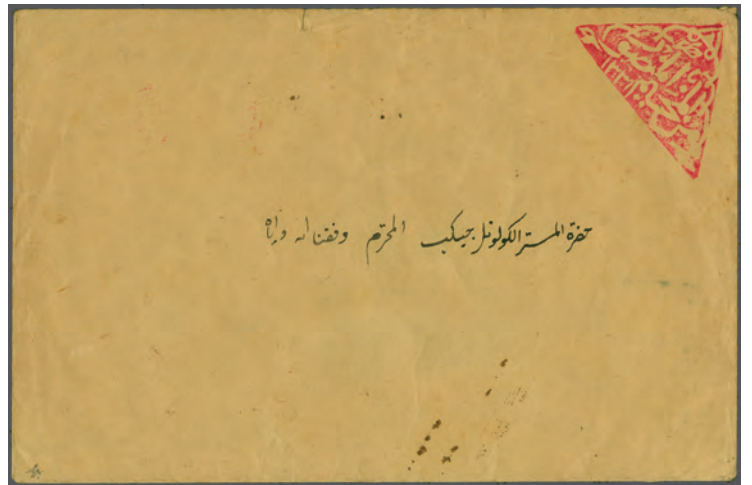 حضرة المستر الكولونل جيكب المحترم وفقنا الله واياه